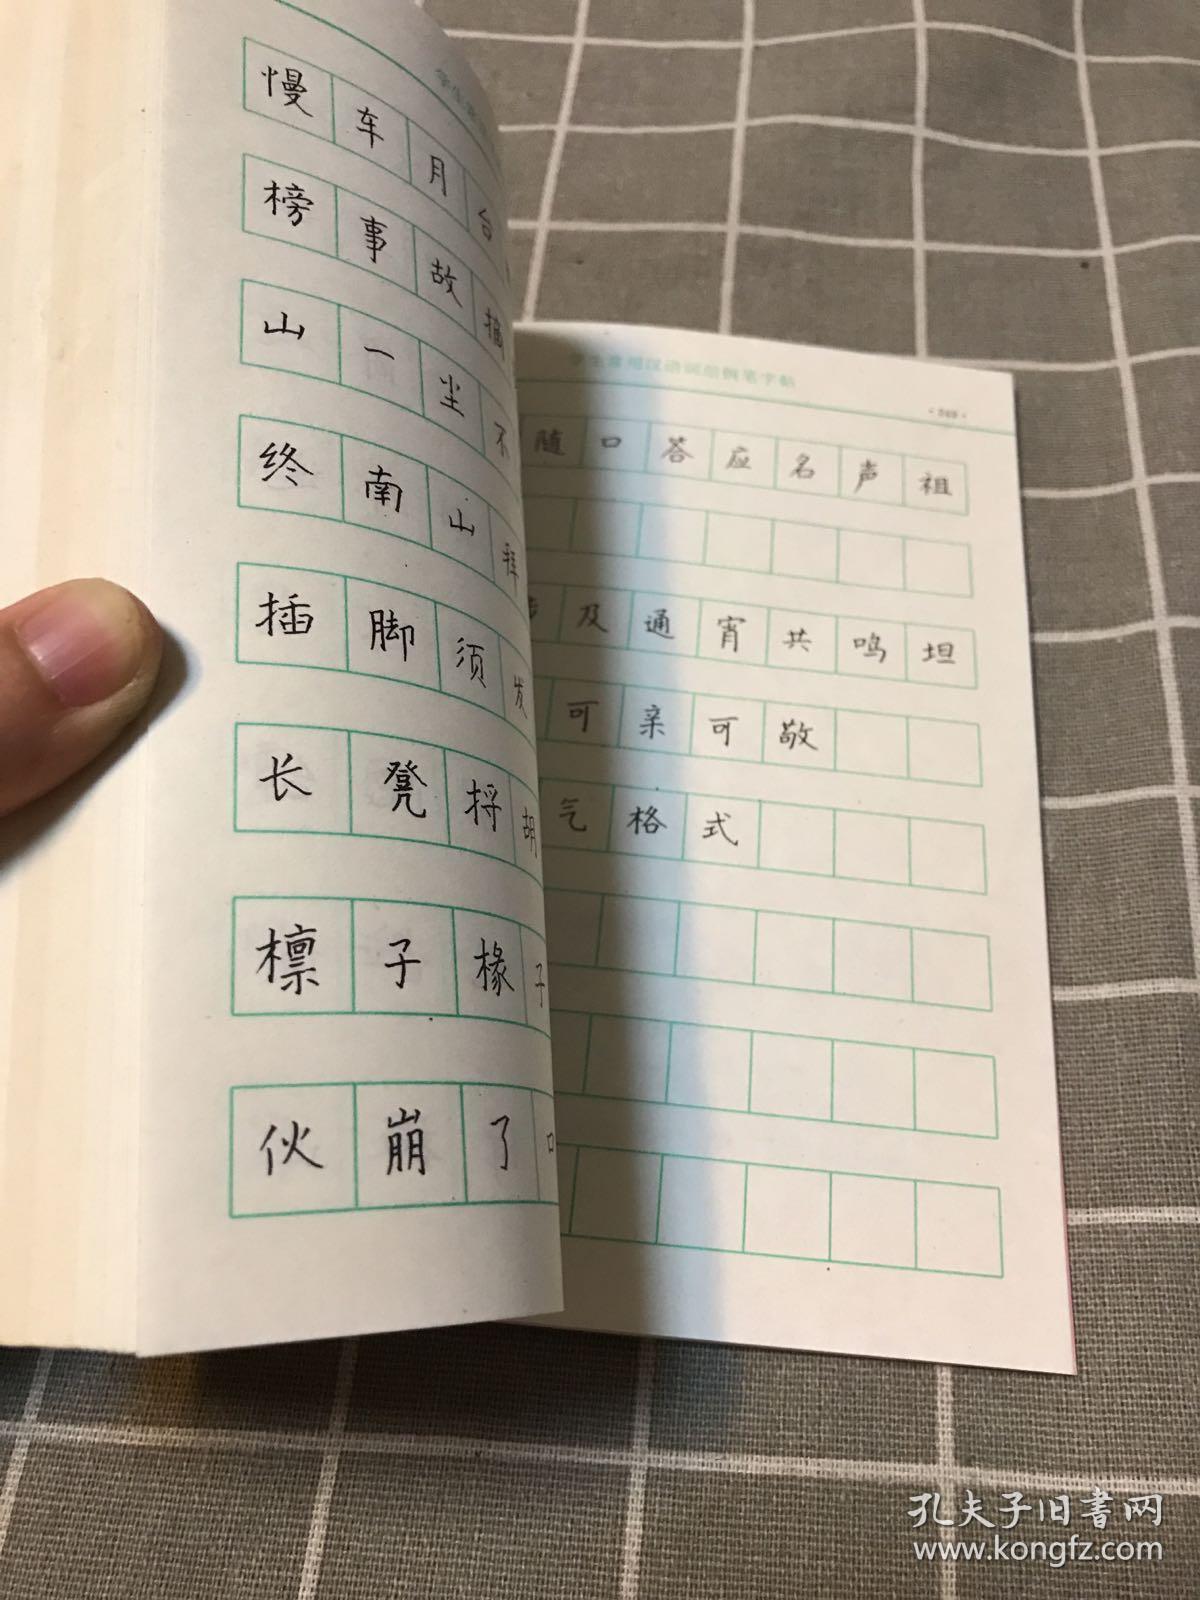 学生常
慢车月台
榜事故摘
山一尘不
终南山拜
插脚须发
长凳捋胡
檩子椽子
伙崩了口
学生常用汉语词组钢笔字帖
随口答应名声祖
涉及通宵共鸣坦
可亲可敬
气格式
孔夫子旧书网
www.kongfz.com